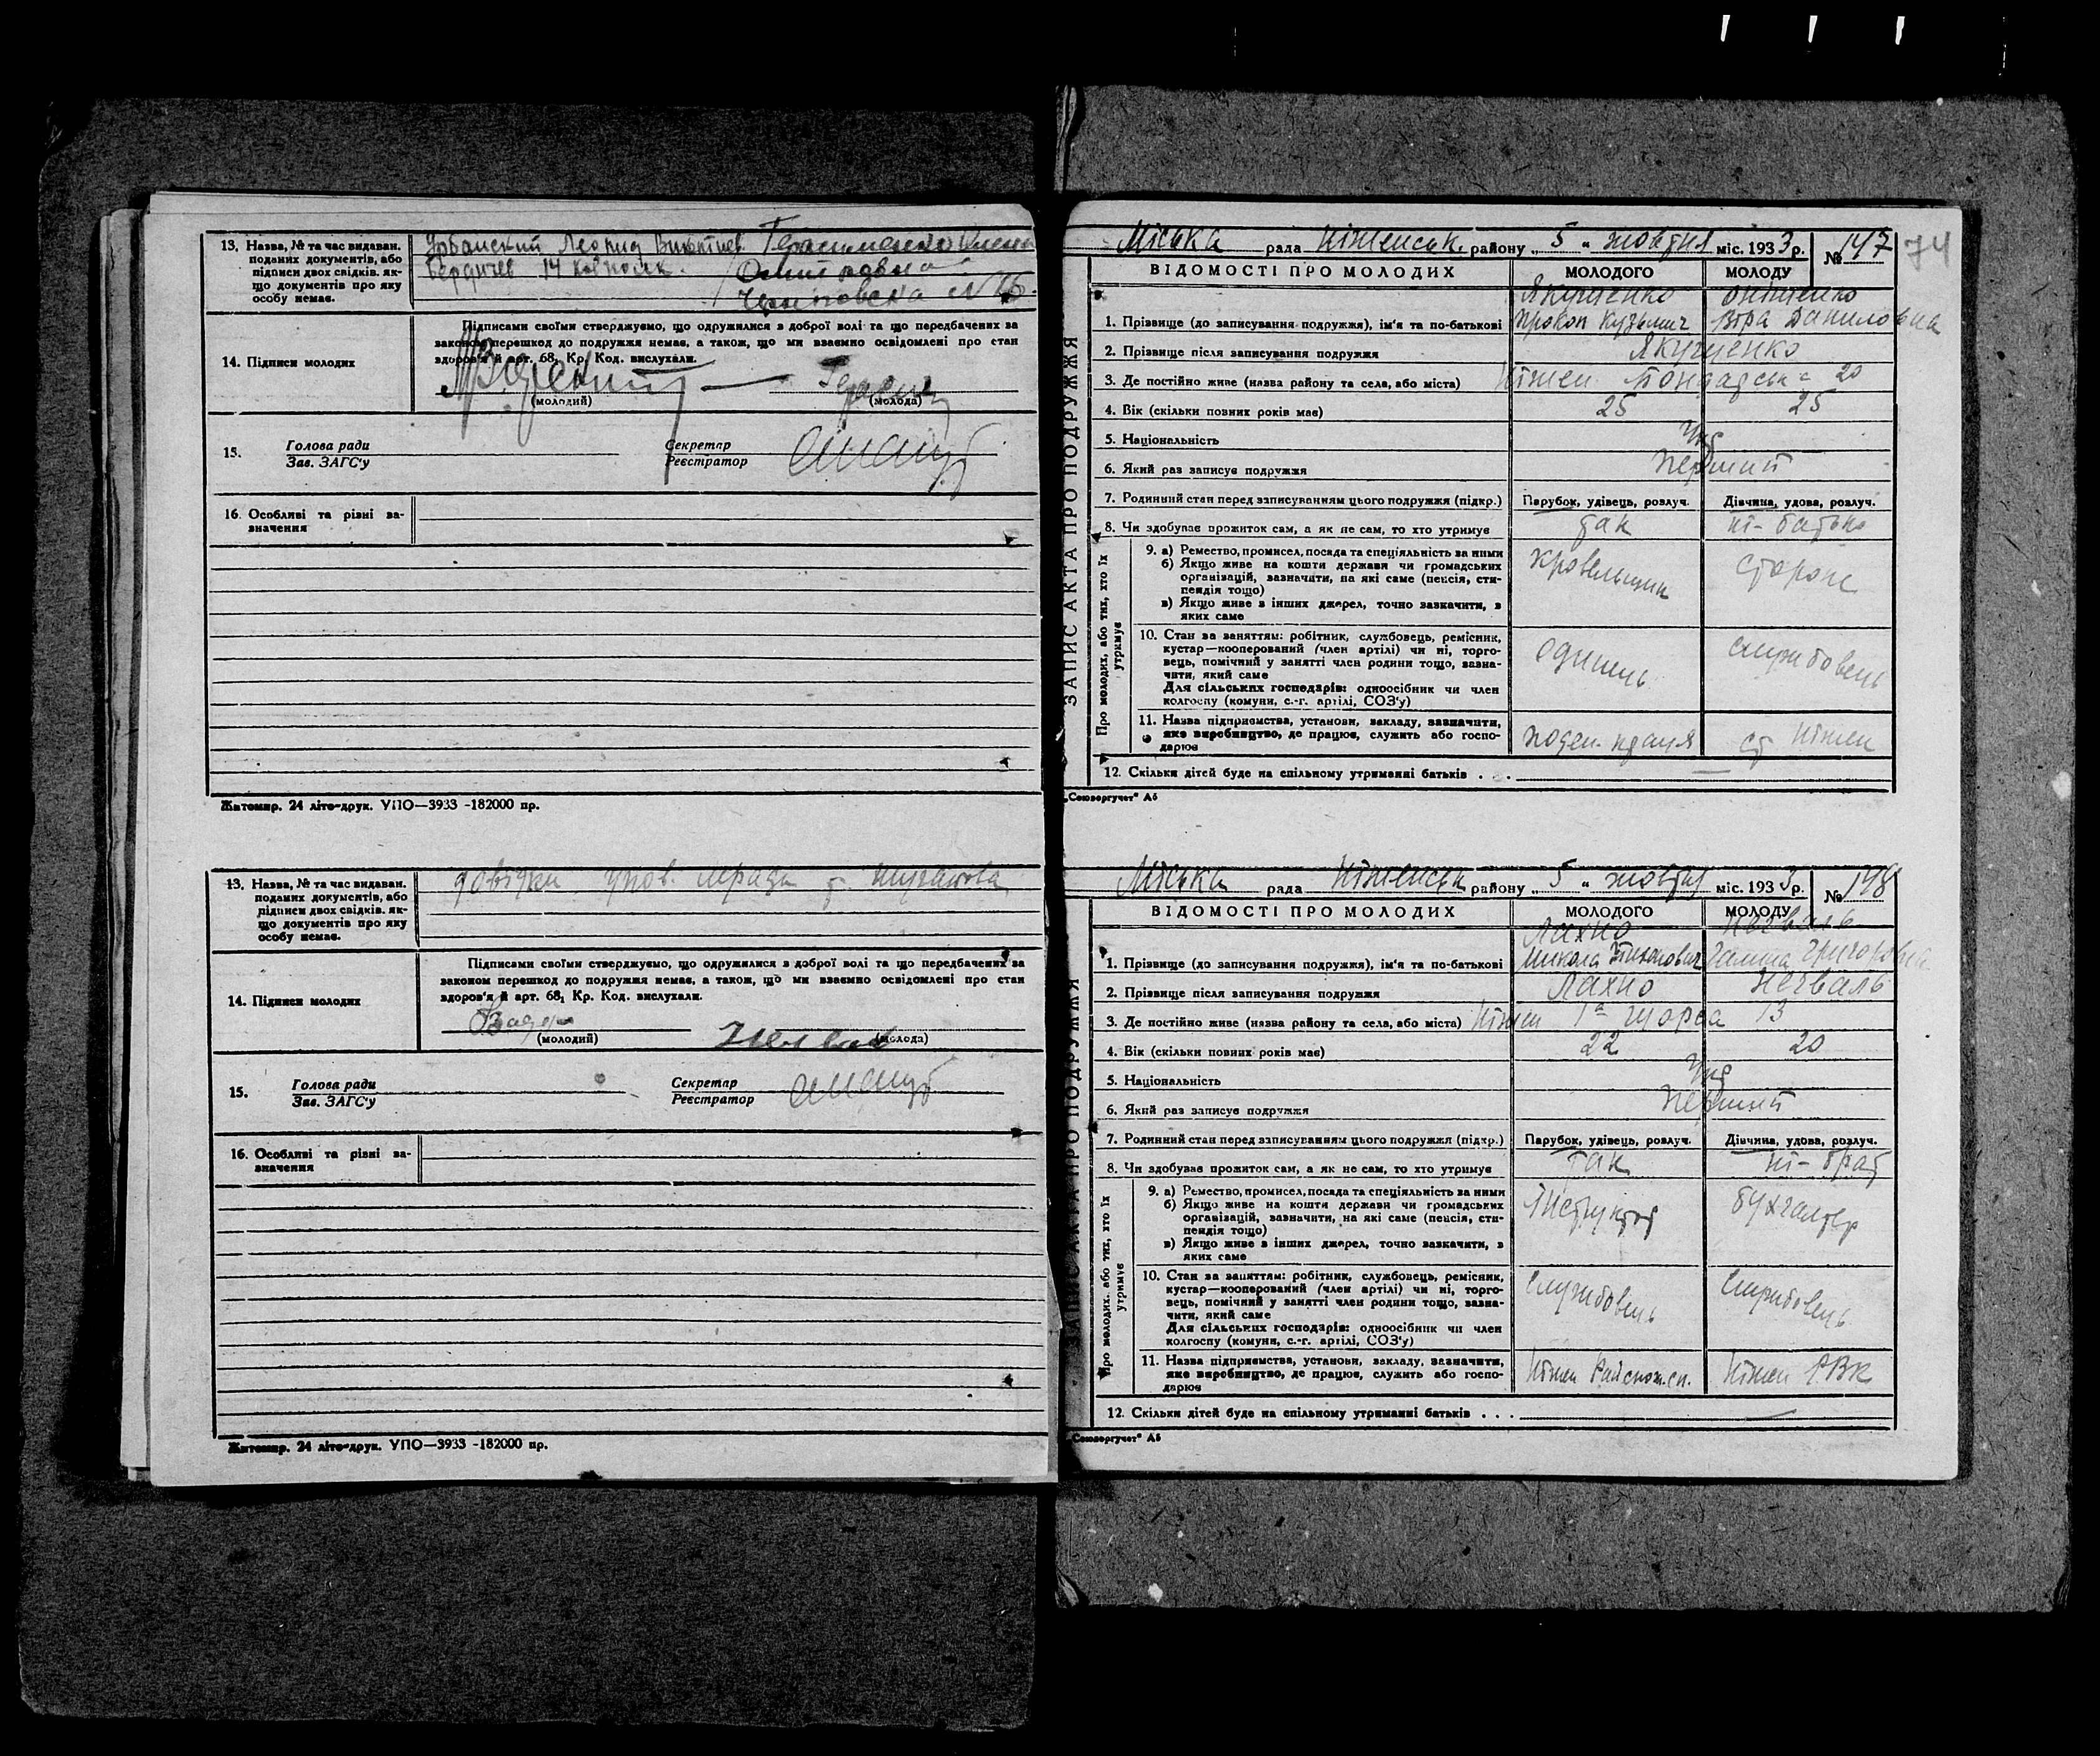 13. Назва, № та час видаван.
поданих документів, або
підписи двох свідків, як-
що документів про яку
особу немає.
Леонид
Бердичев 14
Герасименко
14. Підписи молодих
Підписами своїми стверджуємо, що одружилися з доброї волі та що передбачених за
законом перешкод до подружжя немає, а також, що ми взаємно освідомлені про стан
здоров'я й арт. 68, Кр. Код. вислухали.
(молодий)
(молода)
15.
Голова ради
Зав. ЗАГС'у
Секретар
Реєстратор
16. Особливі та різні за-
значення
Житомир. 24 літо-друк. УПО—3933 -182000 пр.
13. Назва, № та час видаван.
поданих документів, або
підписи двох свідків, як-
що документів про яку
особу немає.
довідки
14. Підписи молодих
Підписами своїми стверджуємо, що одружилися з доброї волі та що передбачених за
законом перешкод до подружжя немає, а також, що ми взаємно освідомлені про стан
здоров'я й арт. 68, Кр. Код. вислухали.
(молодий)
(молода)
15.
Голова ради
Зав. ЗАГС'у
Секретар
Реєстратор
16. Особливі та різні за-
значення
Житомир. 24 літо-друк. УПО—3933 -182000 пр.
74
ЗАПИС АКТА ПРО ПОДРУЖЖЯ
Міська рада Ніженськ. району „ 5 " жовтня міс. 1933 р. № 147
ВІДОМОСТІ ПРО МОЛОДИХ МОЛОДОГО МОЛОДУ
Якущенко Оніщенко
1. Прізвище (до записування подружжя), ім'я та по-батькові Прокоп Кузьмич Віра Даниловна
2. Прізвище після записування подружжя Якущенко
3. Де постійно живе (назва району та села, або міста) Ніжен 20
4. Вік (скільки повних років має) 25 25
5. Національність Укр
6. Який раз записує подружжя перший
7. Родинний стан перед записуванням цього подружжя (підкр.) Парубок, удівець, розлуч. Дівчина, удова, розлуч.
8. Чи здобуває прожиток сам, а як не сам, то хто утримує так ні - батько
Про молодих, або тих, хто їх утримує
9. а) Ремество, промисел, посада та спеціяльність за ними
б) Якщо живе на кошти держави чи громадських
організацій, зазначити, на які саме (пенсія, сти-
пендія тощо)
в) Якщо живе з інших джерел, точно зазначити, з
яких саме
кровельщик сторож
10. Стан за заняттям: робітник, службовець, ремісник,
кустар—кооперований (член артілі) чи ні, торго-
вець, помічний у занятті член родини тощо, зазна-
чити, який саме
Для сільських господарів: одноосібник чи член
колгоспу (комуни, с.-г. артілі, СОЗ'у)
одинець службовець
11. Назва підприємства, установи, закладу, зазначити,
яке виробництво, де працює, служить або госпо-
дарює
поден. праця ст Ніжен
12. Скільки дітей буде на спільному утриманні батьків . . .
„Союзоргучет" А5
ЗАПИС АКТА ПРО ПОДРУЖЖЯ
Міська рада Ніженськ району „ 5 " жовтня міс. 1933 р. № 148
ВІДОМОСТІ ПРО МОЛОДИХ МОЛОДОГО МОЛОДУ
Лахно Нечваль
1. Прізвище (до записування подружжя), ім'я та по-батькові Микола Галина Григоровна
2. Прізвище після записування подружжя Лахно Нечваль
3. Де постійно живе (назва району та села, або міста) Ніжен 13
4. Вік (скільки повних років має) 22 20
5. Національність Укр
6. Який раз записує подружжя перший
7. Родинний стан перед записуванням цього подружжя (підкр.) Парубок, удівець, розлуч. Дівчина, удова, розлуч.
8. Чи здобуває прожиток сам, а як не сам, то хто утримує так ні - брат
Про молодих, або тих, хто їх утримує
9. а) Ремество, промисел, посада та спеціяльність за ними
б) Якщо живе на кошти держави чи громадських
організацій, зазначити, на які саме (пенсія, сти-
пендія тощо)
в) Якщо живе з інших джерел, точно зазначити, з
яких саме
інструктор бухгалтер
10. Стан за заняттям: робітник, службовець, ремісник,
кустар—кооперований (член артілі) чи ні, торго-
вець, помічний у занятті член родини тощо, зазна-
чити, який саме
Для сільських господарів: одноосібник чи член
колгоспу (комуни, с.-г. артілі, СОЗ'у)
службовець службовець
11. Назва підприємства, установи, закладу, зазначити,
яке виробництво, де працює, служить або госпо-
дарює
Ніжен Райспож.сп. Ніжен РВК
12. Скільки дітей буде на спільному утриманні батьків . . .
„Союзоргучет" А5